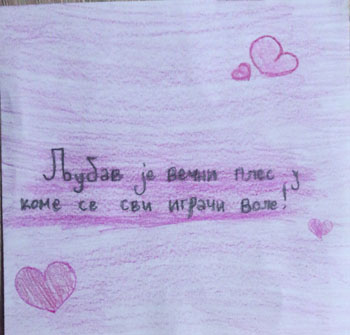 Љубав је вечни плес у
коме се сви играчи воле!